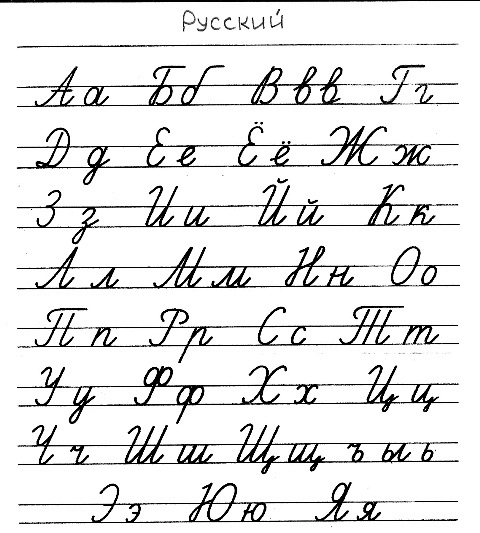 Русский
Аа Бб Ввв Гг
Дд Ее Ёё Жж
Зз Ии Йй Кк
Лл Мм Нн Оо
Пп Рр Сс Тт
Уу Фф Хх Цц
Чч Шш Щщ ъ ы ь
Ээ Юю Яя